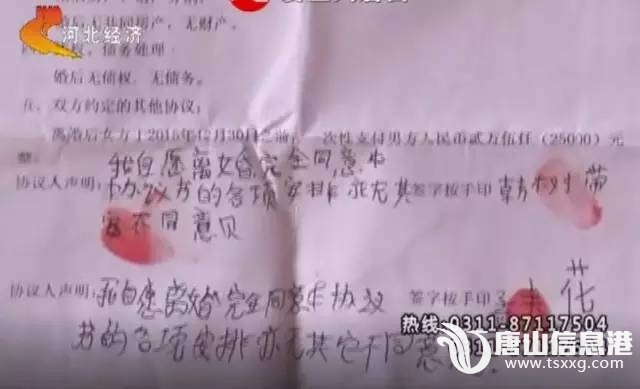 河北经济
婚后无共同房产，无财产。
债务处理
婚后无债权、无债务。
五、双方约定的其他协议：
离婚后女方于2015年12月30日之前，一次性支付男方人民币贰万伍仟（25000）元
整。
我自愿离婚完全同意本
协议人声明：协议书的各项安排亦无其 签字按手印
它不同意见
协议人声明：我自愿离婚完全同意本协议 签字按手印 花
书的各项安排亦无其它不同意
热线:0311-87117504
唐山信息港
www.tsxxg.com